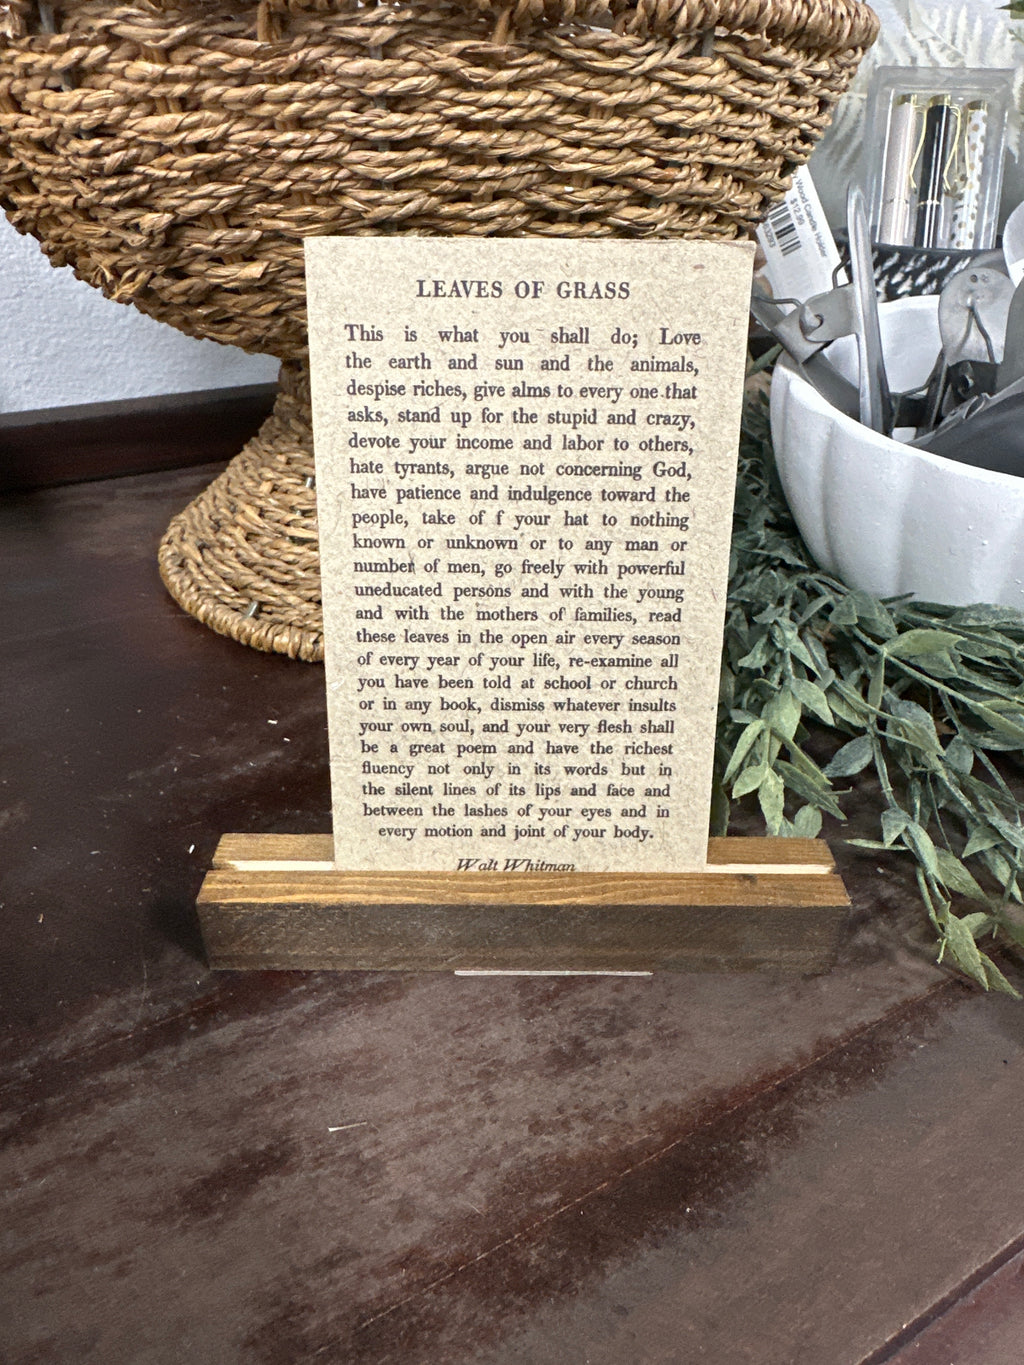 LEAVES OF GRASS
This is what you shall do; Love
the earth and sun and the animals,
despise riches, give alms to every one that
asks, stand up for the stupid and crazy,
devote your income and labor to others,
hate tyrants, argue not concerning God,
have patience and indulgence toward the
people, take of f your hat to nothing
known or unknown or to any man or
number of men, go freely with powerful
uneducated persons and with the young
and with the mothers of families, read
these leaves in the open air every season
of every year of your life, re-examine all
you have been told at school or church
or in any book, dismiss whatever insults
your own soul, and your very flesh shall
be a great poem and have the richest
fluency not only in its words but in
the silent lines of its lips and face and
between the lashes of your eyes and in
every motion and joint of your body.
Walt Whitman
Wood Candle Holder
$12.99